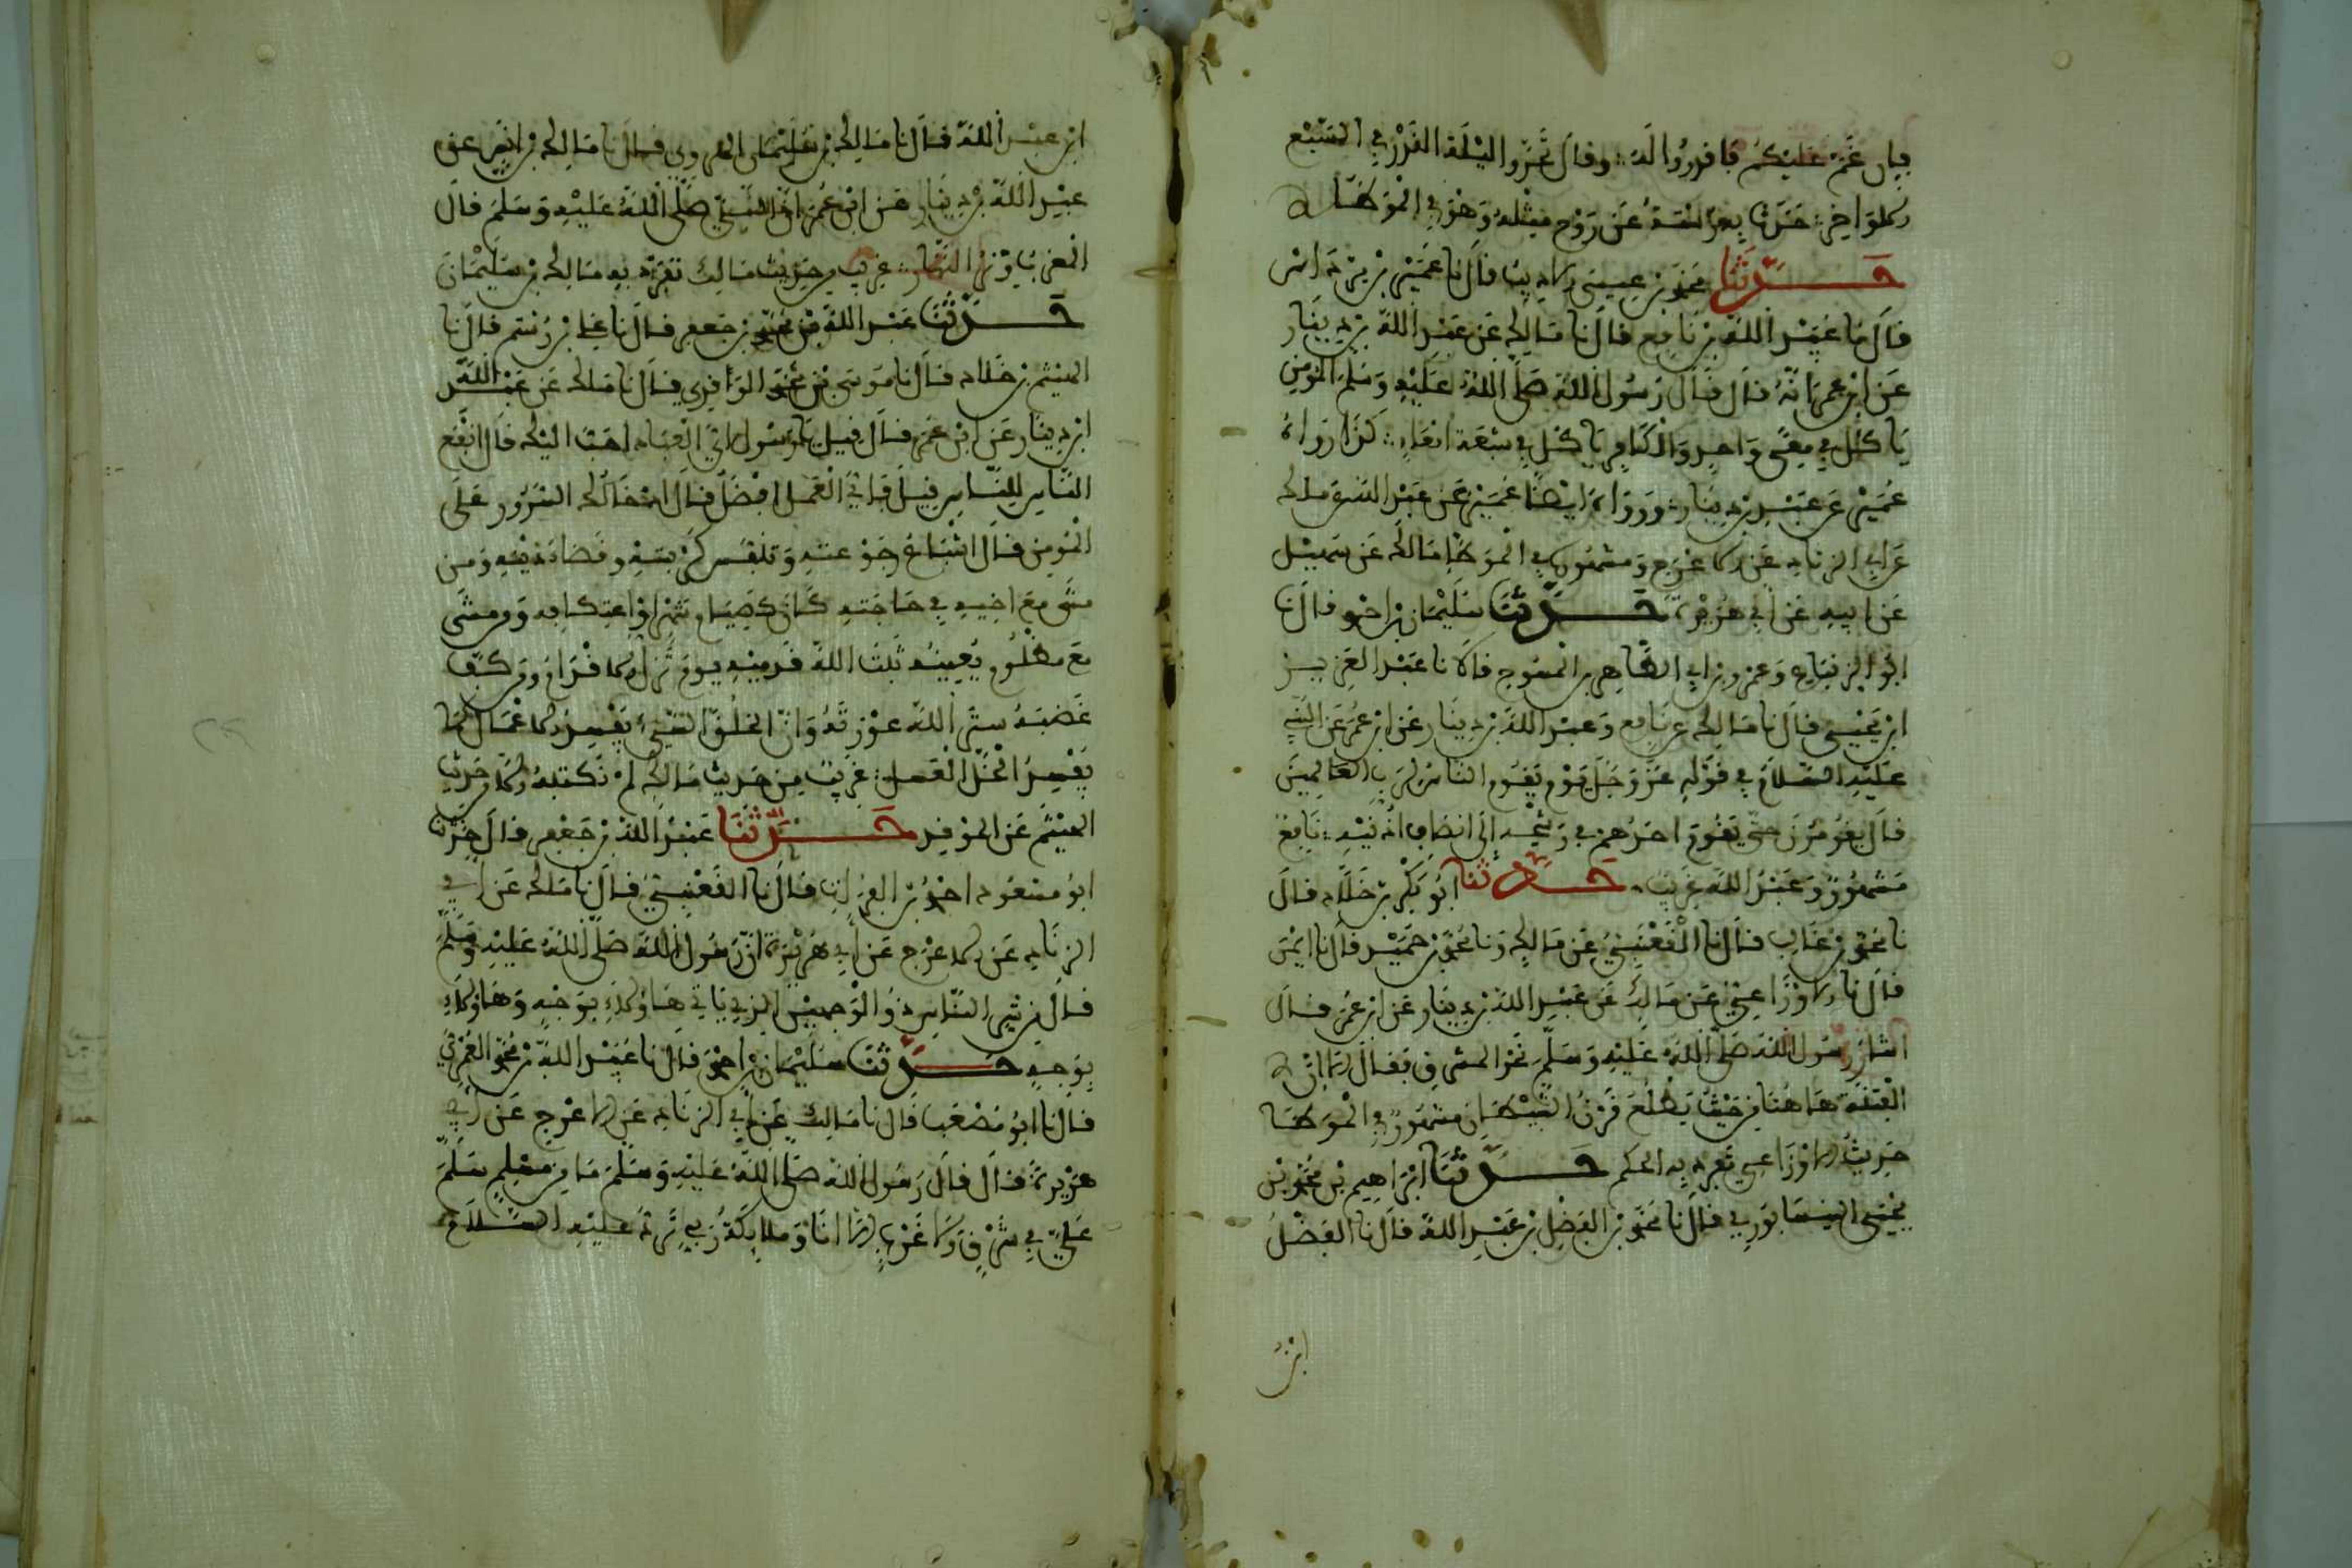 فإن غم عليكم فاقدروا له وقال تحروا ليلة القدر في السبع
الاواخر حدثنا ابو سلمة عن روح مثله وهو في الموطا
حدثنا محمد بن عيسى الاديب قال نا عمير بن مرداس
قال نا عبد الله بن نافع قال نا مالك عن عبد الله بن دينار
عن ابن عمر انه قال قال رسول الله صلى الله عليه وسلم المومن
ياكل في معى واحد والكافر ياكل في سبعة امعاء كذا رواه
عمير عن عبد بن دينار ورواه ايضا عمير عن عبد الله عن مالك
عن ابي الزناد عن الاعرج ومشهور في الموطا مالك عن سهيل
عن ابيه عن ابي هريرة حدثنا سليمان بن احمد قال نا
ابو الزنباع وعمرو بن ابي الطاهر بن السرح قالا نا عبد العزيز
ابن يحيى قال نا مالك عن نافع وعبد الله بن دينار عن ابن عمر عن النبي
عليه السلام في قوله عز وجل يوم يقوم الناس لرب العالمين
قال يقومون حتى يقوم احدهم في رشحه إلى انصاف اذنيه نافع
مشهور وعبد الله غريب حدثنا ابو بكر بن خلاد قال
نا محمد بن غالب قال نا القعنبي عن مالك ونا محمد بن حميد قال نا
قال نا الاوزاعي عن مالك عن عبد الله بن دينار عن ابن عمر قال
اشار رسول الله صلى الله عليه وسلم نحو المشرق فقال الا ان
الفتنة هاهنا من حيث يطلع قرن الشيطان مشهور في الموطا
حديث الاوزاعي تفرد به الحكم حدثنا ابراهيم بن محمد بن
يحيى النيسابوري قال نا محمد بن الفضل بن عبد الله قال نا الفضل
ابن
ابن عبد الله قال نا مالك بن سليمان الهروي قال نا مالك بن انس عن
عبد الله بن دينار عن ابن عمر ان النبي صلى الله عليه وسلم قال
غريب من حديث مالك تفرد به مالك بن سليمان
حدثنا عبد الله بن محمد بن جعفر قال نا علي بن رستم قال نا
الهيثم بن خالد قال نا موسى بن محمد الموقري قال نا مالك عن عبد الله
ابن دينار عن ابن عمر قال قيل يا رسول اي العباد احب اليك قال انفع
الناس للناس قيل فاي العمل افضل قال ادخالك السرور على
المومن قال اشباع جوعته وتنفيس كربته وقضاء دينه ومن
مشى مع اخيه في حاجته كان كصيام شهر او اعتكافه ومن مشى
مع مظلوم يعينه ثبت الله قدميه يوم تزل الاقدام ومن كف
غضبه ستر الله عورته وان الخلق السيئ يفسد الاعمال كما
يفسد الخل العسل غريب من حديث مالك لم نكتبه الا من حديث
الهيثم عن الموقري حدثنا عبد الله بن جعفر قال حدثنا
ابو مسعود احمد بن الفرات قال نا القعنبي قال نا مالك عن ابي
الزناد عن الاعرج عن ابي هريرة ان رسول الله صلى الله عليه وسلم
قال من شر الناس ذو الوجهين الذي ياتي هاؤلاء بوجه وهاؤلاء
بوجه حدثنا سليمان بن احمد قال نا عبيد الله بن محمد العمري
قال نا ابو مصعب قال نا مالك عن ابي الزناد عن الاعرج عن ابي
هريرة قال قال رسول الله صلى الله عليه وسلم ما من مسلم سلم
علي في شرق ولا غرب الا انا وملائكة ربي ترد عليه السلام